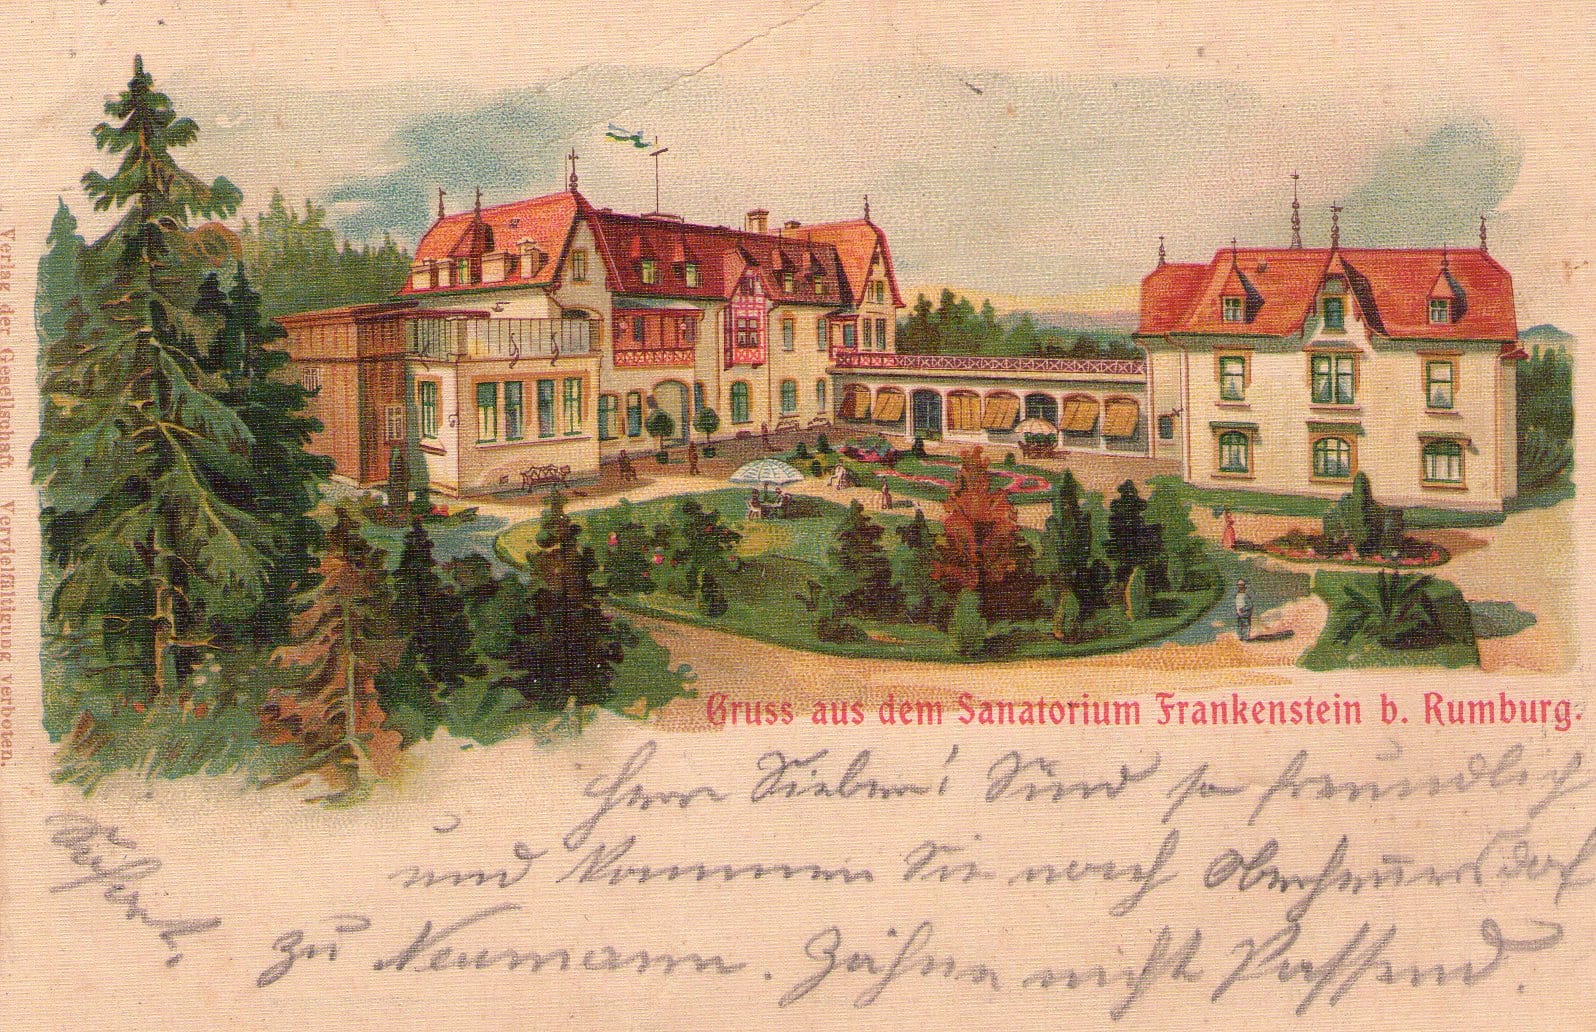 Verlag der Gesellschaft Vervielfältigung verboten.
Gruss aus dem Sanatorium Frankenstein b. Rumburg.
Herr Sieber! Sind so freundlich
und kommen Sie nach Oberhennersdorf
zu Neumann. Zähne nicht Passend.